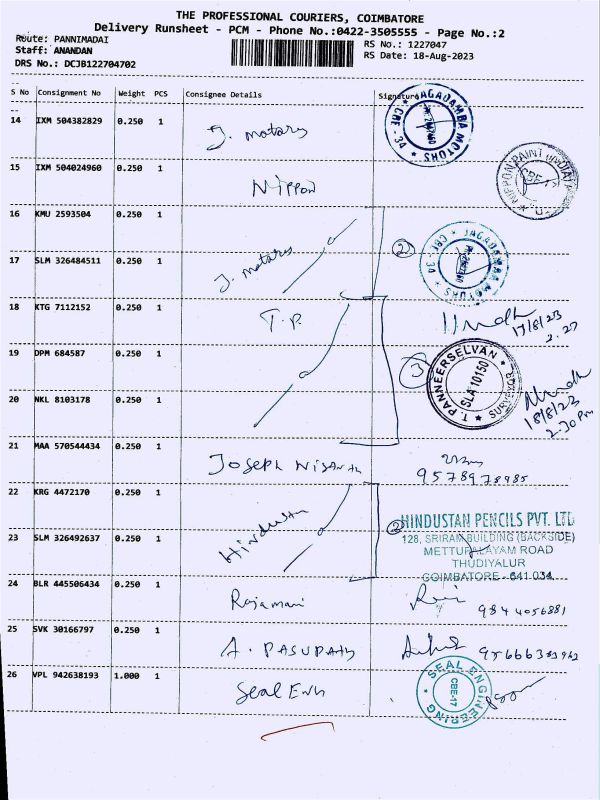 THE PROFESSIONAL COURIERS, COIMBATORE
Delivery Runsheet - PCM - Phone No.:0422-3505555 - Page No.:2
Route: PANNIMADAI
RS No.: 1227047
Staff: ANANDAN
RS Date: 18-Aug-2023
DRS No.: DCJB122704702
S No Consignment No Weight PCS Consignee Details Signature
14 IXM 504382829 0.250 1 J. motors
JAGADAMBA MOTORS * CBE - 34 *
15 IXM 504024960 0.250 1 Nippon
NIPPON PAINT (INDIA) CBE-17
16 KMU 2593504 0.250 1
17 SLM 326484511 0.250 1 J. motors 2
JAGADAMBA MOTORS * CBE - 34 *
18 KTG 7112152 0.250 1 T.P.
17/8/23
2.27
19 DPM 684587 0.250 1 3
T. PANNEERSELVAN SLA 10150 SURVEYOR
20 NKL 8103178 0.250 1
18/8/23
2.30 Pm
21 MAA 570544434 0.250 1 Joseph Nisanth
9578978985
22 KRG 4472170 0.250 1
23 SLM 326492637 0.250 1 Hindustan 2
HINDUSTAN PENCILS PVT. LTD
128, SRIRAM BUILDING (BACKSIDE)
METTUPALAYAM ROAD
THUDIYALUR
COIMBATORE - 641 034
24 BLR 445506434 0.250 1 Rajamani
9844056881
25 SVK 30166797 0.250 1 A. PASUPATHY
26 VPL 942638193 1.000 1 Seal Eng
SEAL ENGINEERING CBE-17